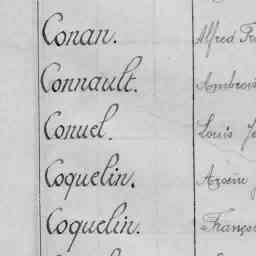 Conan. Alfred
Connault. Ambrois
Conuel. Louis
Coquelin.
Coquelin. Franço